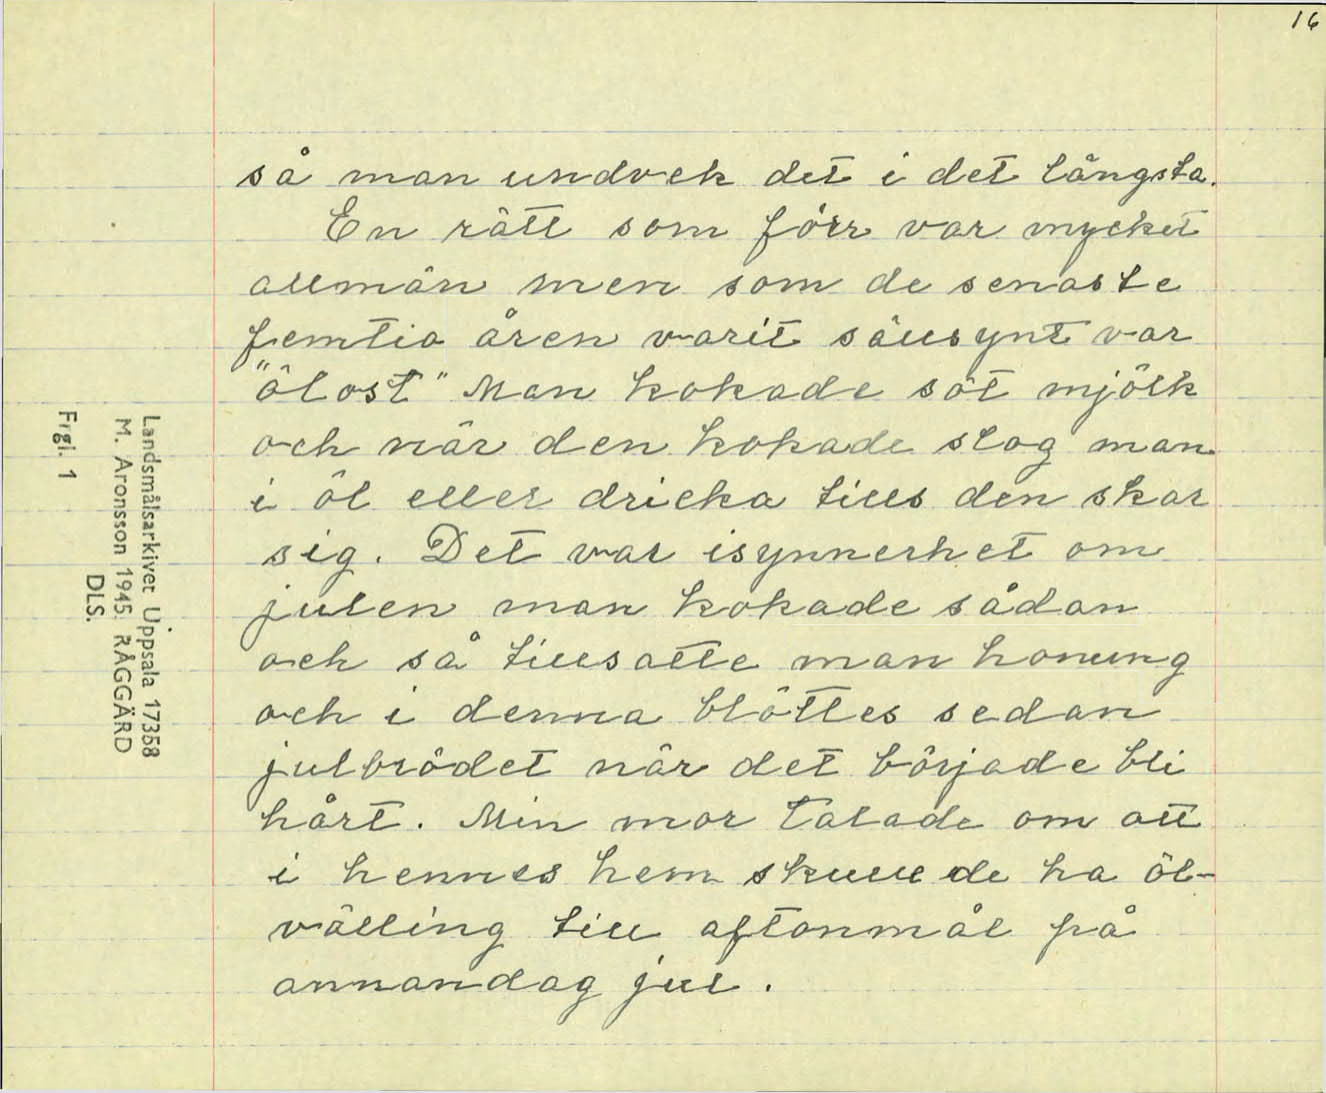 16
så man undvek det i det längsta.
En rätt som förr var mycket
allmän men som de senaste
femtio åren varit sällsynt var
"ölost" Man kokade söt mjölk
och när den kokade slog man
i öl eller dricka tills den skar
sig. Det var isynnerhet om
julen man kokade sådan
och så tillsatte man honung
och i denna blöttes sedan
julbrödet när det började bli
hårt. Min mor talade om att
i hennes hem skulle de ha öl-
välling till aftonmål på
annandag jul.
Landsmålsarkivet Uppsala 17358
M. Aronsson 1945. RÅGGÄRD
DLS.
Frgl. 1